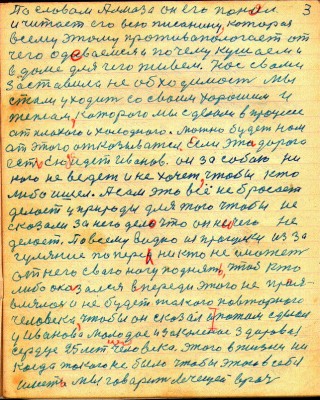 3
По словам Алмаза он его понял
и читает его всю писанину, которая
всему этому противополагает от
чего одеваемся и почему кушаем и
в доме для чего живем. Нас с вами
заставила необходимость мы
стали уходить со своим хорошим и
теплым, которого мы сделали в процессе
от плохого и холодного. Можно будет нам
от этого отказываться. Если эта дорога
есть, ею идет Иванов. он за собою ни
кого не ведет и не хочет, чтобы кто
либо шел. А сам это всё не бросает
делает у природы для того чтобы не
сказали за него дело что он ничего не
делает. По всему видно из прогулки из за
гуляние поперек никто не сможет
от него свою ногу поднять, чтоб кто
либо оказался впереди этого не проя-
влялось и не будет такого повторного
человека, чтобы он сказал а потом сделал
у Иванова молодое и закаленое здоровое
сердце 25 лет человека. этого в жизни ни
когда такого не было чтобы это в себе
иметь мы говорит лечащей врач